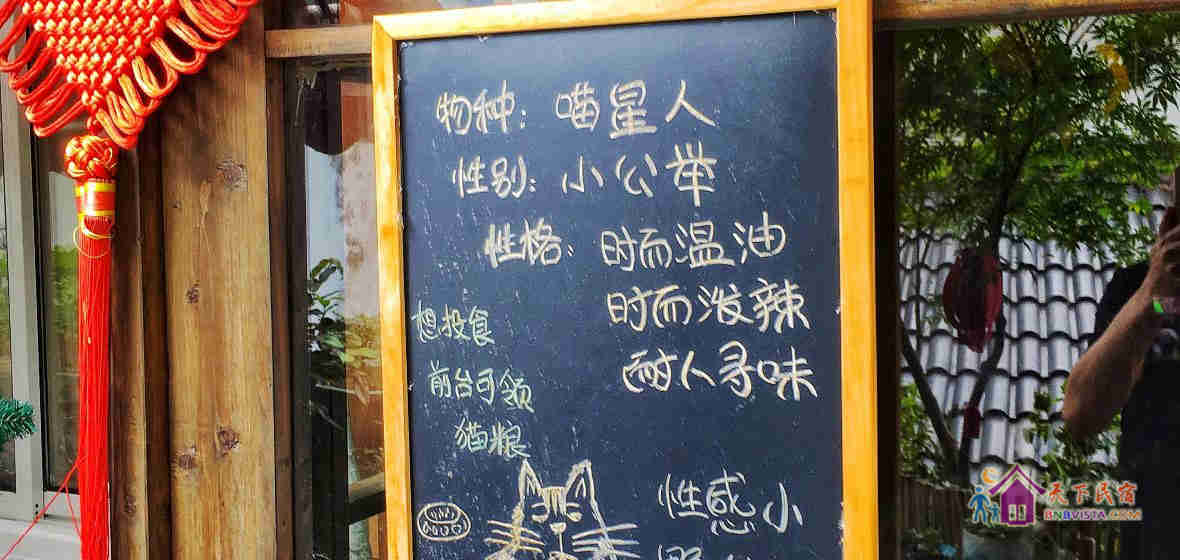 物种：喵星人
性别：小公举
性格：时而温油
时而泼辣
耐人寻味
想投食
前台可领
猫粮
性感小
天下民宿
BNBVISTA.COM